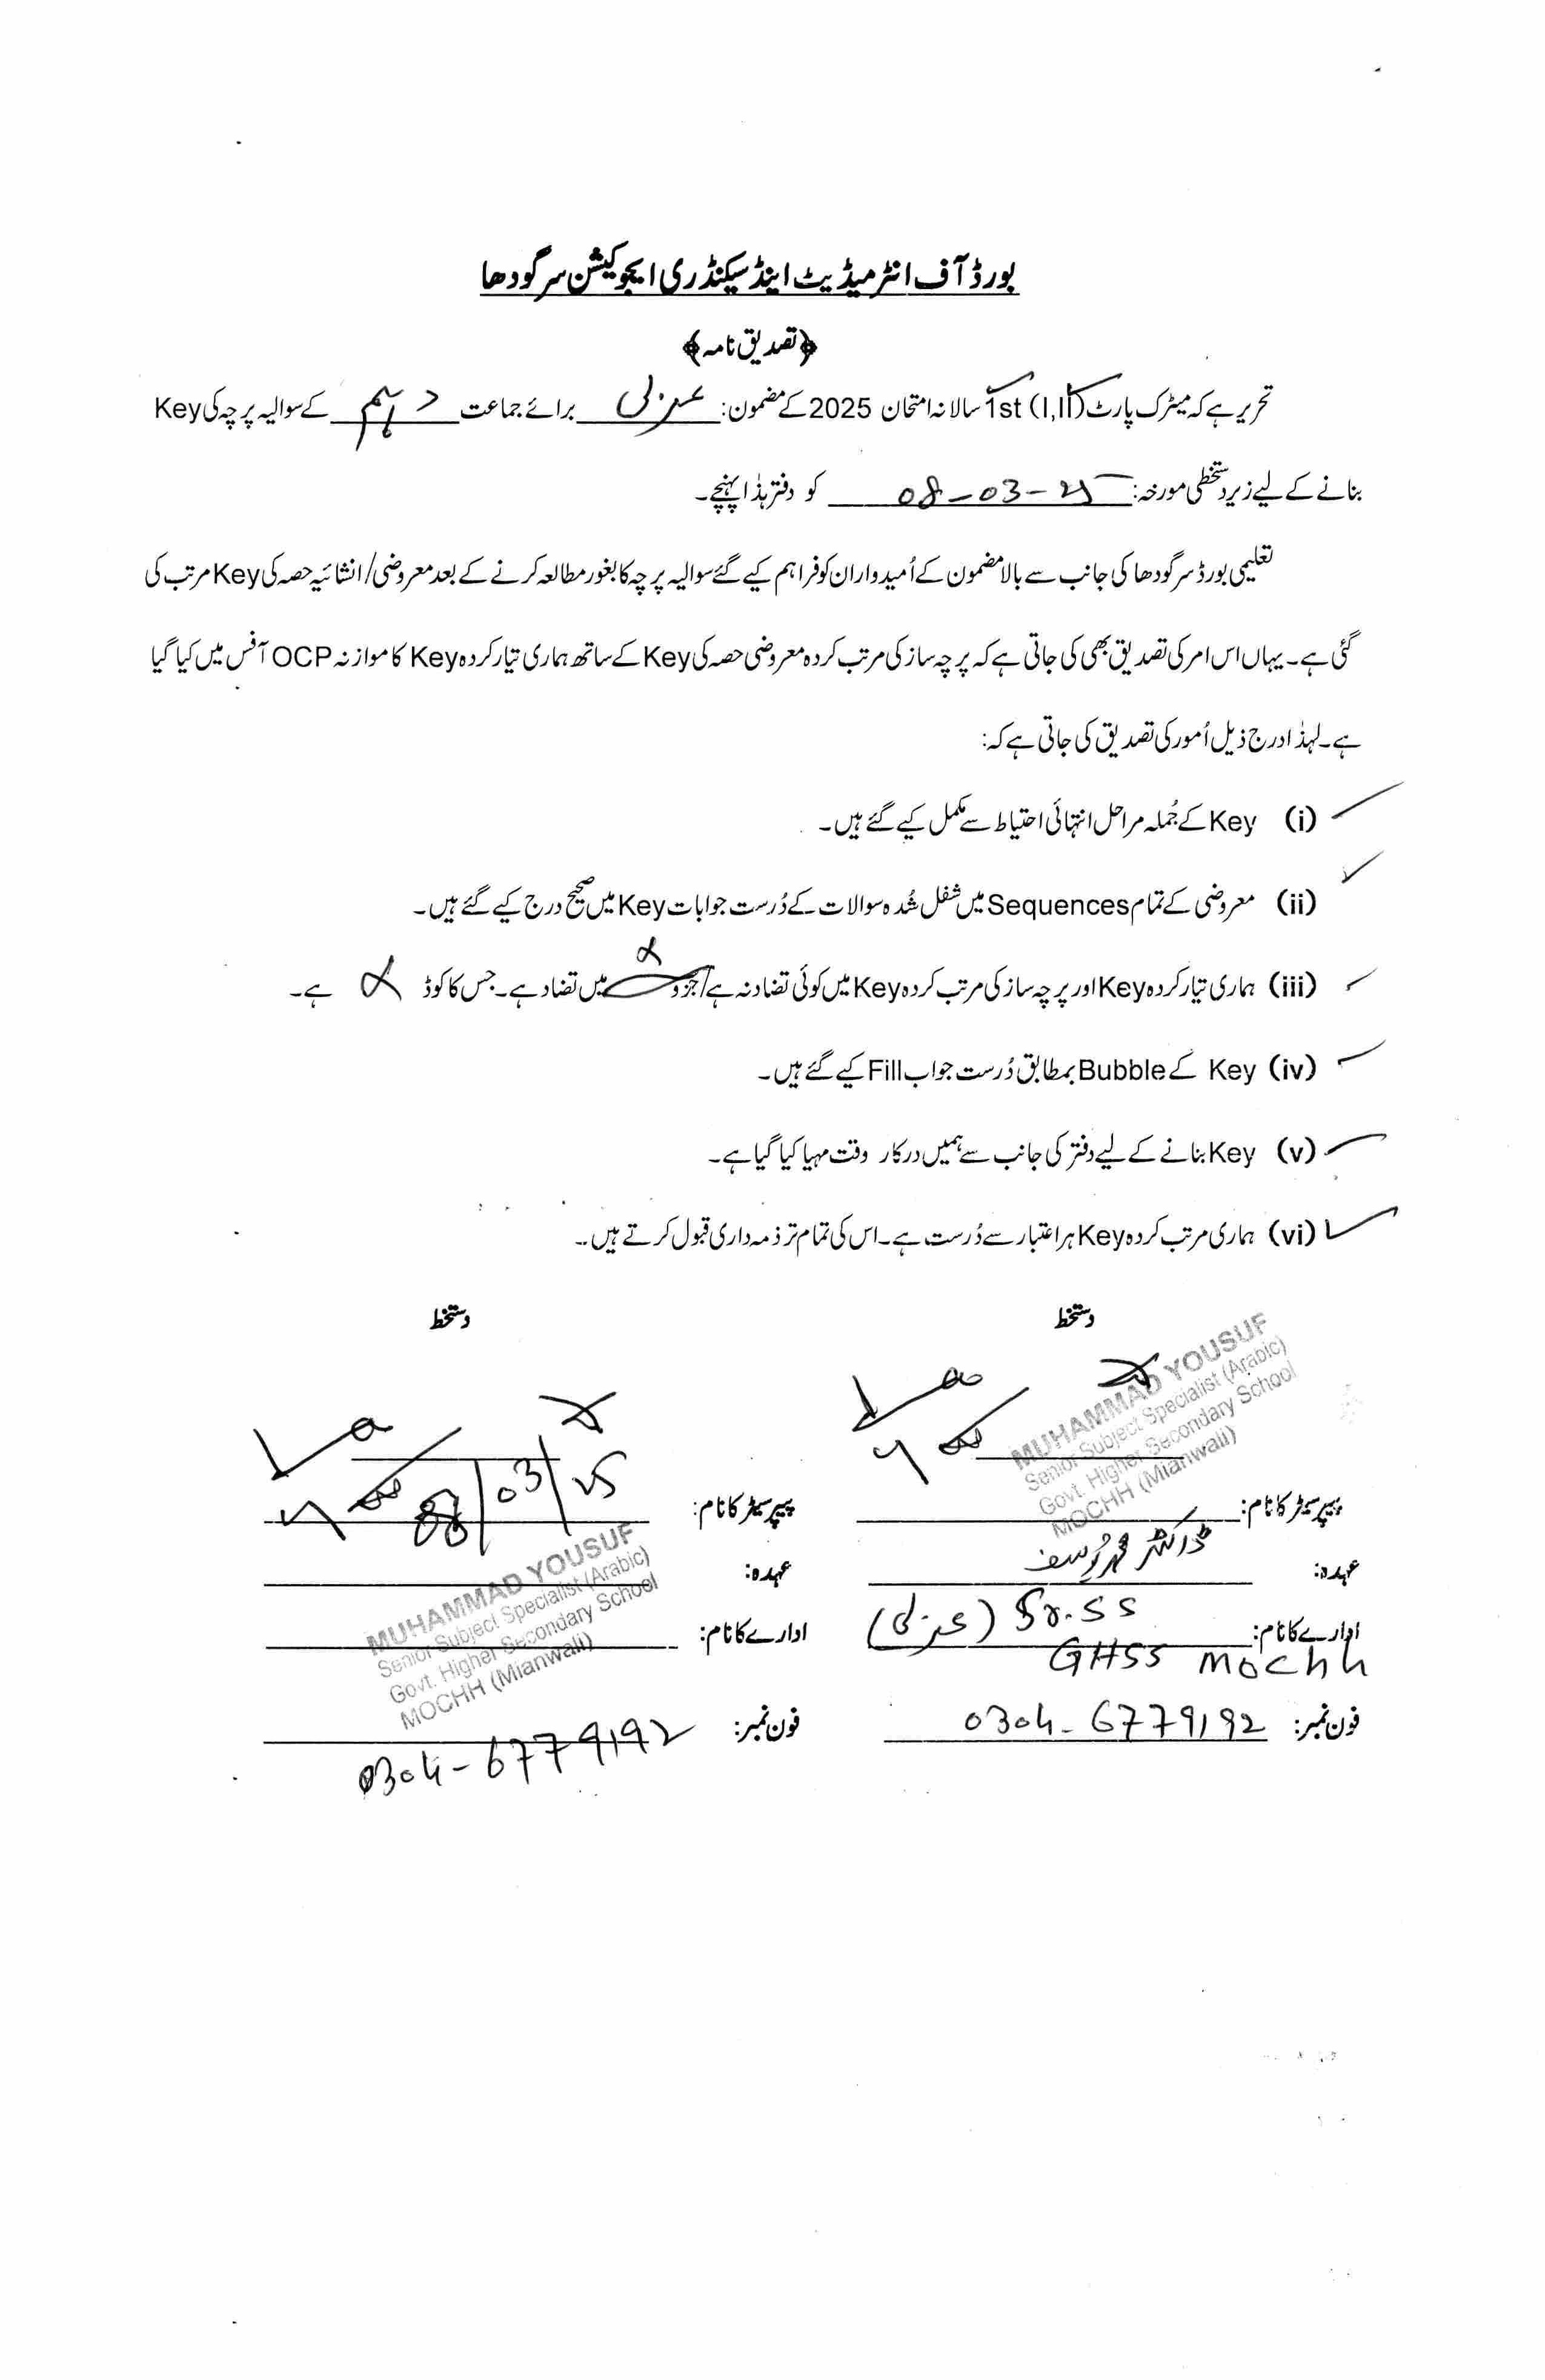 بورڈ آف انٹرمیڈیٹ اینڈ سیکنڈری ایجوکیشن سرگودھا
﴿تصدیق نامہ﴾
تحریر ہے کہ میٹرک پارٹ (I,II) 1st سالانہ امتحان 2025 کے مضمون: عربی برائے جماعت دہم کے سوالیہ پرچہ کی Key
بنانے کے لیے زیر دستخطی مورخہ: 08-03-25 کو دفتر ہذا پہنچے۔
تعلیمی بورڈ سرگودھا کی جانب سے بالا مضمون کے اُمیدواران کو فراہم کیے گئے سوالیہ پرچہ کا بغور مطالعہ کرنے کے بعد معروضی/انشائیہ حصہ کی Key مرتب کی
گئی ہے۔ یہاں اس امر کی تصدیق بھی کی جاتی ہے کہ پرچہ ساز کی مرتب کردہ معروضی حصہ کی Key کے ساتھ ہماری تیار کردہ Key کا موازنہ OCP آفس میں کیا گیا
ہے۔ لہذا درج ذیل اُمور کی تصدیق کی جاتی ہے کہ:
(i) Key کے جُملہ مراحل انتہائی احتیاط سے مکمل کیے گئے ہیں۔
(ii) معروضی کے تمام Sequences میں شفل شُدہ سوالات کے دُرست جوابات Key میں صحیح درج کیے گئے ہیں۔
(iii) ہماری تیار کردہ Key اور پرچہ ساز کی مرتب کردہ Key میں کوئی تضاد نہ ہے/جزو میں تضاد ہے۔ جس کا کوڈ ہے۔
(iv) Key کے Bubble بمطابق دُرست جواب Fill کیے گئے ہیں۔
(v) Key بنانے کے لیے دفتر کی جانب سے ہمیں درکار وقت مہیا کیا گیا ہے۔
(vi) ہماری مرتب کردہ Key ہر اعتبار سے دُرست ہے۔ اس کی تمام تر ذمہ داری قبول کرتے ہیں۔
دستخط دستخط
MUHAMMAD YOUSUF
Senior Subject Specialist (Arabic)
Govt. Higher Secondary School
MOCHH (Mianwali)
08/03/25
پیپر سیٹر کا نام: ڈاکٹر محمد یوسف پیپر سیٹر کا نام:
عہدہ: Sr. SS (عربی) عہدہ:
ادارے کا نام: GHSS Mochh ادارے کا نام:
MUHAMMAD YOUSUF
Senior Subject Specialist (Arabic)
Govt. Higher Secondary School
MOCHH (Mianwali)
فون نمبر: 0304-6779192 فون نمبر: 0304-6779192